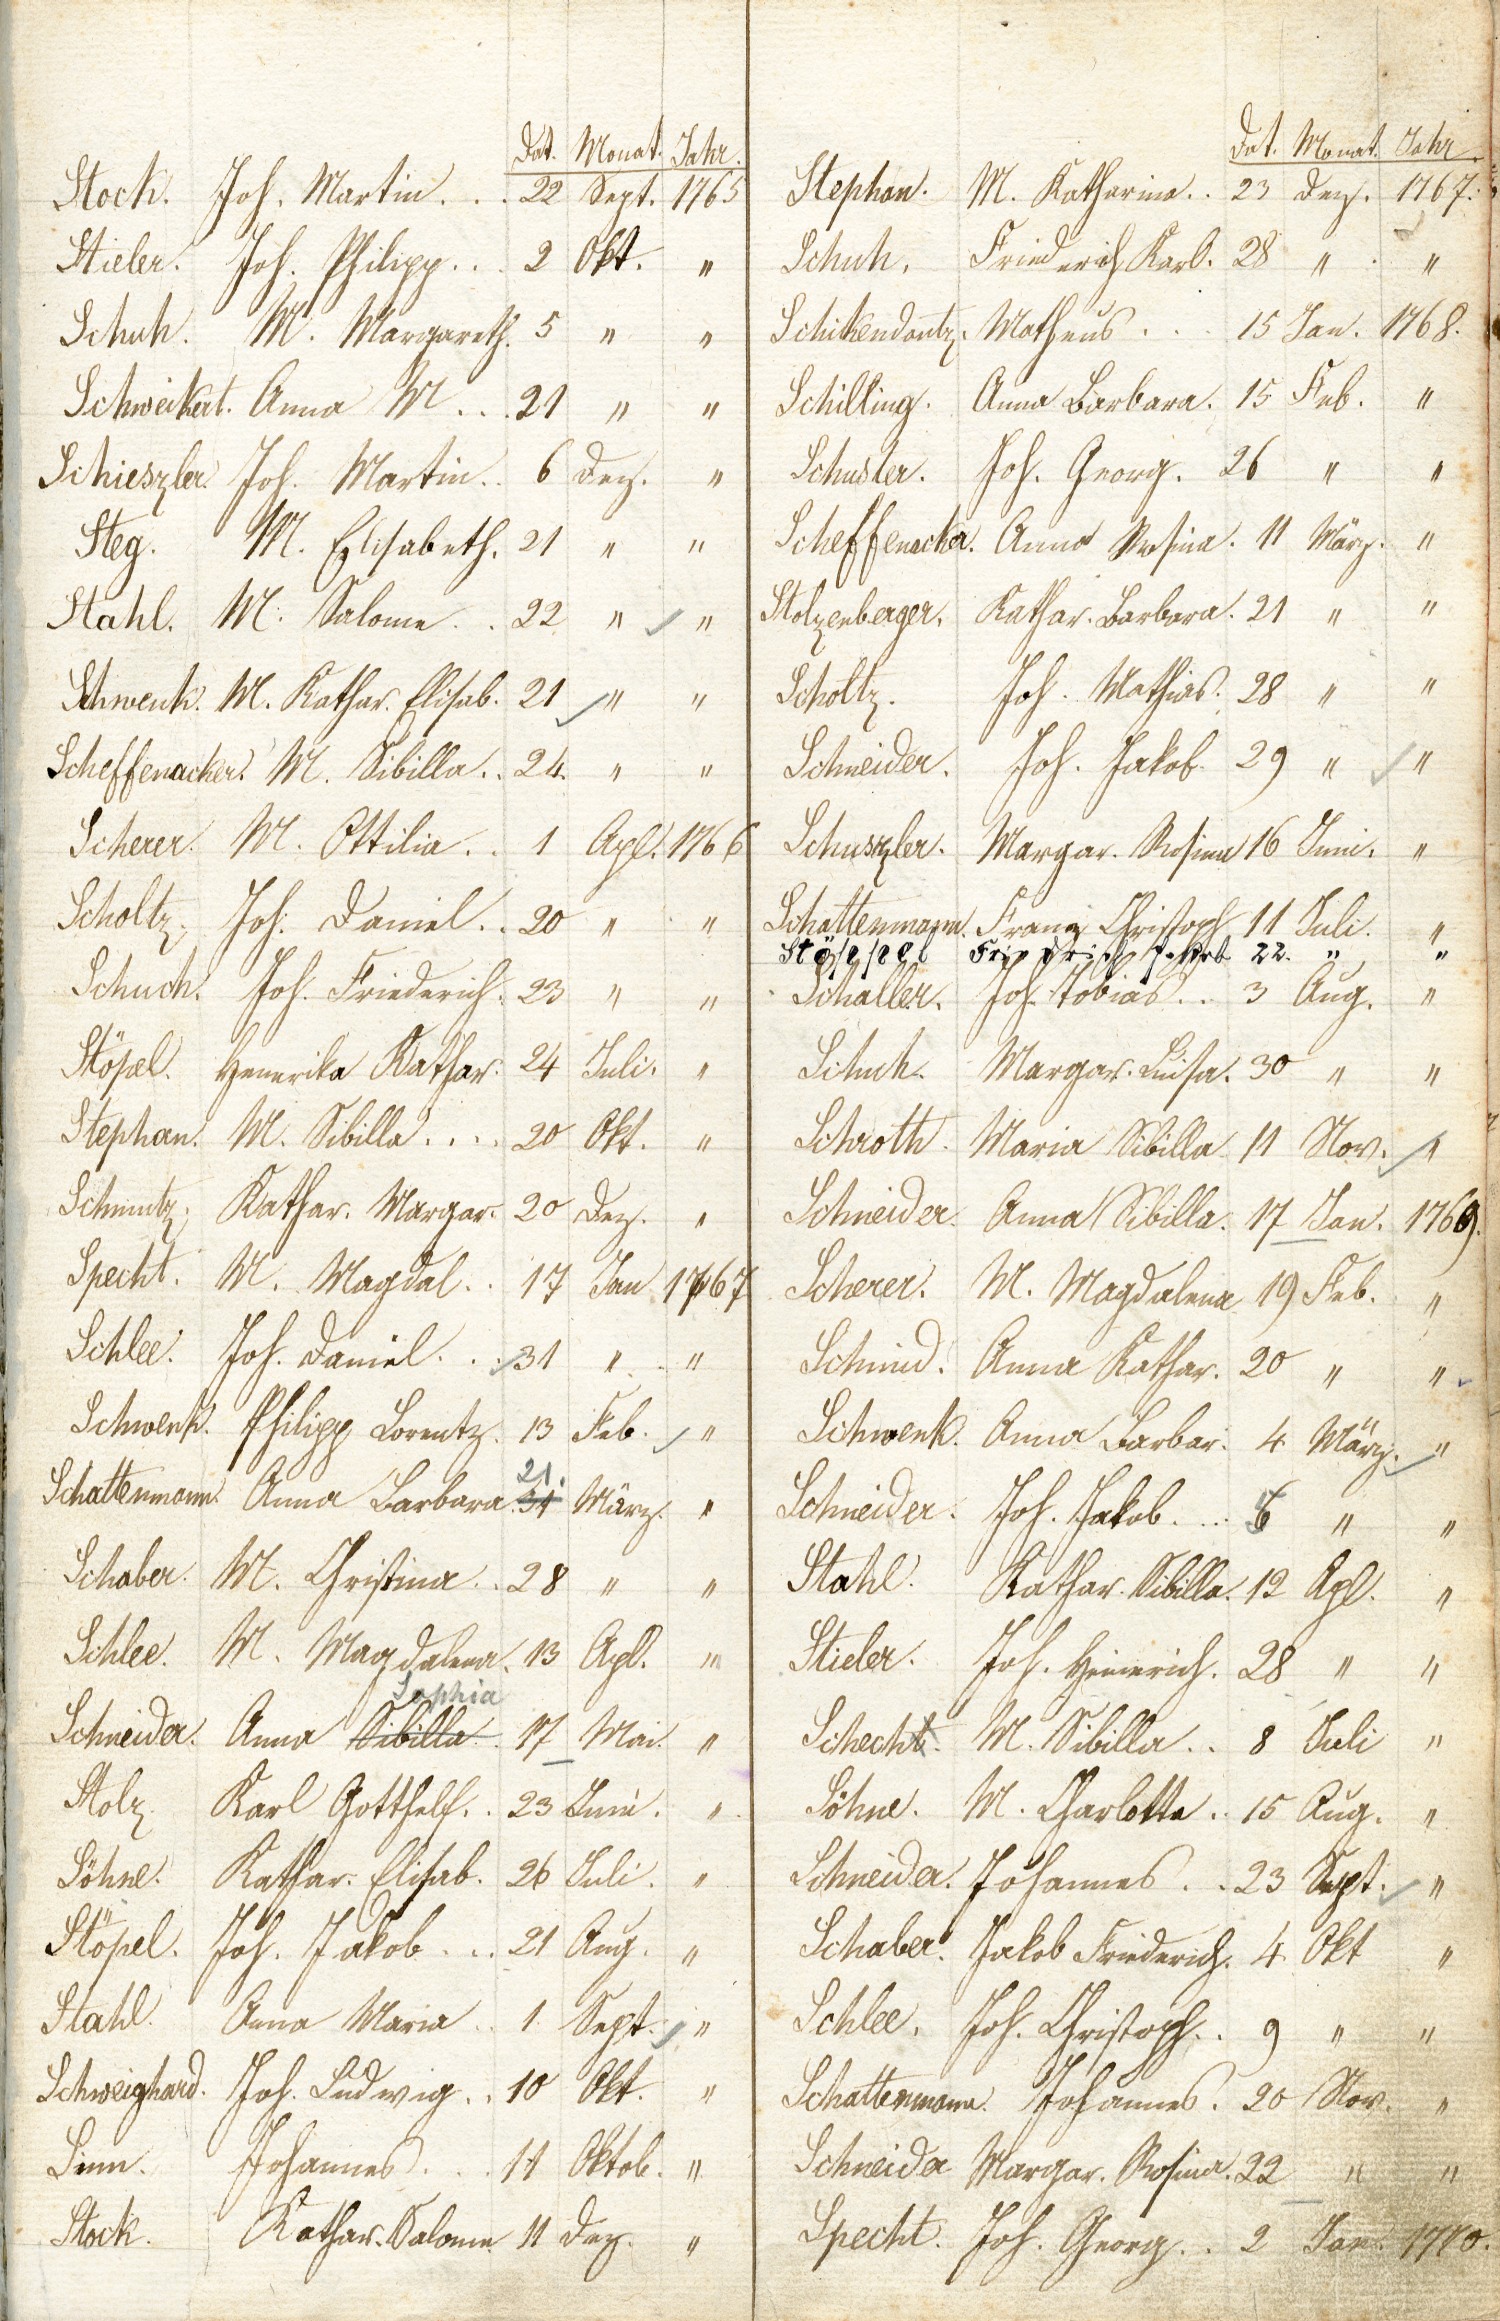 Dat. Monat. Jahr.
Stock. Joh. Martin . . . 22 Sept. 1765
Stieler. Joh. Philipp . . . 2 Okt. "
Schuh. M. Margareth. 5 " "
Schweikert. Anna M . . . 21 " "
Schieszler Joh. Martin . . 6 Dez. "
Steg. M. Elisabeth. 21 " "
Stahl. M. Salome . . 22 " "
Schwenk. M. Kathar. Elisab. 21 " "
Scheffenacker. M. Sibilla . . 24. " "
Scherer. M. Ottilia . . 1 Apl. 1766
Scholtz. Joh. Daniel . . 20 " "
Schuch. Joh. Friederich. 23 " "
Stöpel. Henerika Kathar. 24 Juli. "
Stephan. M. Sibilla . . . . 20 Okt. "
Schmutz. Kathar. Margar. 20 Dez. "
Specht. M. Magdal. . 17 Jan 1767
Schlee. Joh. Daniel . . . 31 " "
Schwenk. Philipp Lorentz. 13 Feb. "
21.
Schattenmann. Anna Barbara 31 März. "
Schaber. M. Christina . . 28 " "
Schlee. M. Magdalena. 13 Apl. "
Sophia
Schneider. Anna Sibilla . 17 Mai. "
Stolz. Karl Gotthelf. . 23 Juni. "
Söhne. Kathar. Elisab. 26 Juli. "
Stöpel. Joh. Jakob . . . 21 Aug. "
Stahl. Anna Maria . . 1. Sept. "
Schweighard. Joh. Ludwig . . 10 Okt. "
Sinn. Johannes . . . 11 Oktob. "
Stock. Kathar. Salome 11 Dez. "
Dat. Monat. Jahr
Stephan. M. Katharina . . 23 Dez. 1767.
Schuh. Friederich Karl. 28 " "
Schikendantz. Matheus . . . 15 Jan. 1768.
Schilling. Anna Barbara. 15 Feb. "
Schuster. Joh. Georg. 26 " "
Scheffenacker. Anna Rosina. 11 März. "
Stolzenberger. Kathar. Barbara. 21 " "
Scholtz. Joh. Mathias. 28 " "
Schneider. Joh. Jakob 29 " "
Schuszler. Margar. Rosina 16 Juni. "
Schattenmann. Franz Christoph 11 Juli. "
22. " "
Schaller. Joh. Tobias . . 3 Aug. "
Schuh. Margar. Luisa. 30 " "
Schroth. Maria Sibilla 11 Nov. "
Schneider. Anna Sibilla. 17 Jan. 1769.
Scherer. M. Magdalena 19 Feb. "
Schmid. Anna Kathar. 20 " "
Schwenk. Anna Barbar. 4 März. "
Schneider. Joh. Jakob . . . 6 " "
Stahl. Kathar. Sibilla. 12 Apl. "
Stieler. Joh. Heinerich. 28 " "
Schecht. M. Sibilla . . 8 Juli "
Söhne. M. Charlotta . . 15 Aug. "
Schneider. Johannes . . 23 Sept. "
Schaber. Jakob Friederich. 4. Okt "
Schlee. Joh. Christoph. . 9 " "
Schattenmann. Johannes. 20 Nov. "
Schneider Margar. Rosina. 22 " "
Specht. Joh. Georg . . 2 Jan. 1770.